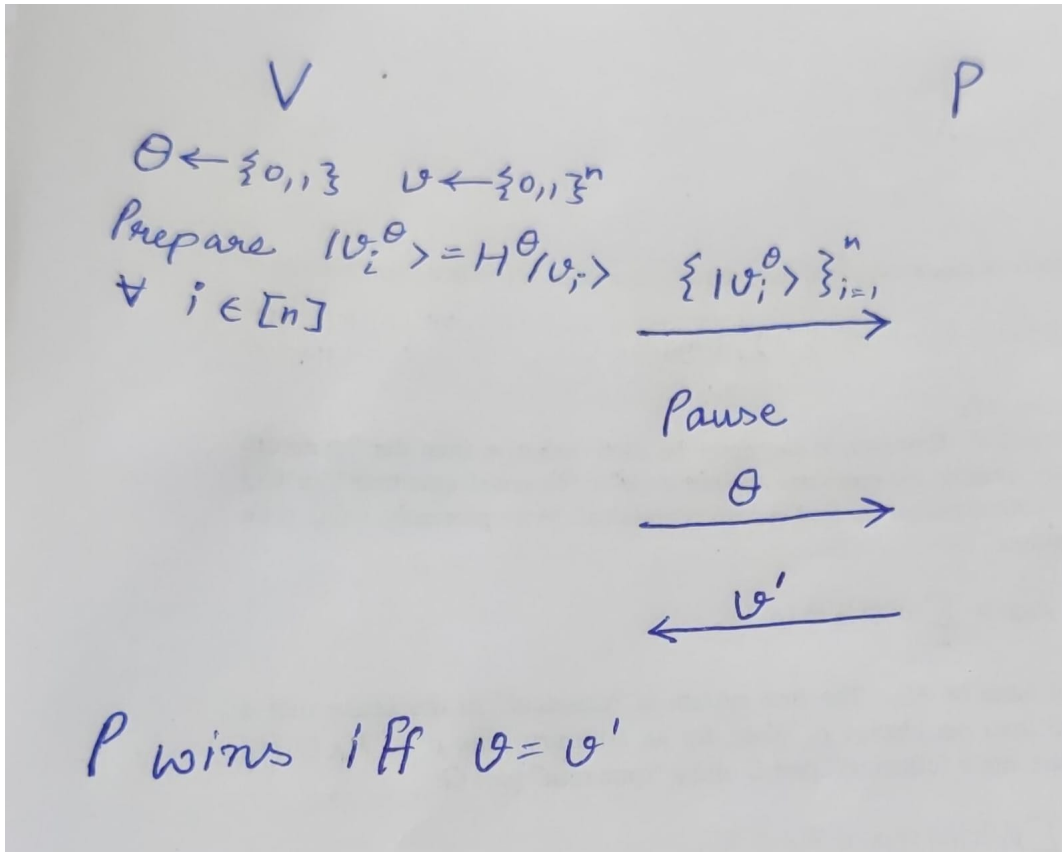 V P
θ ← {0,1} v ← {0,1}ⁿ
Prepare |vᵢ^θ> = H^θ|vᵢ> {|vᵢ^θ>}ⁿᵢ₌₁
∀ i ∈ [n]
Pause
θ
v'
P wins iff v = v'